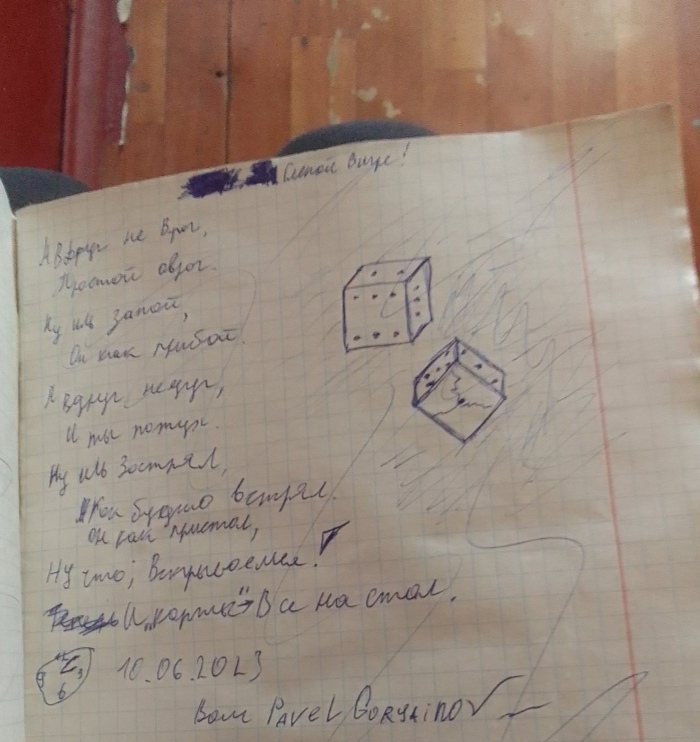 Слепой
А вдруг не враг,
Простой овраг.
Ну иль запой,
Он как прибой.
А вдруг недуг,
И ты потух.
Ну иль Зострял,
Как будто встрял.
Он как пристал,
Ну что; Вскрываемся!
И „карты" Все на стол.
12
9 3
6
10.06.2023
Вот PAVEL GORYAiNOV